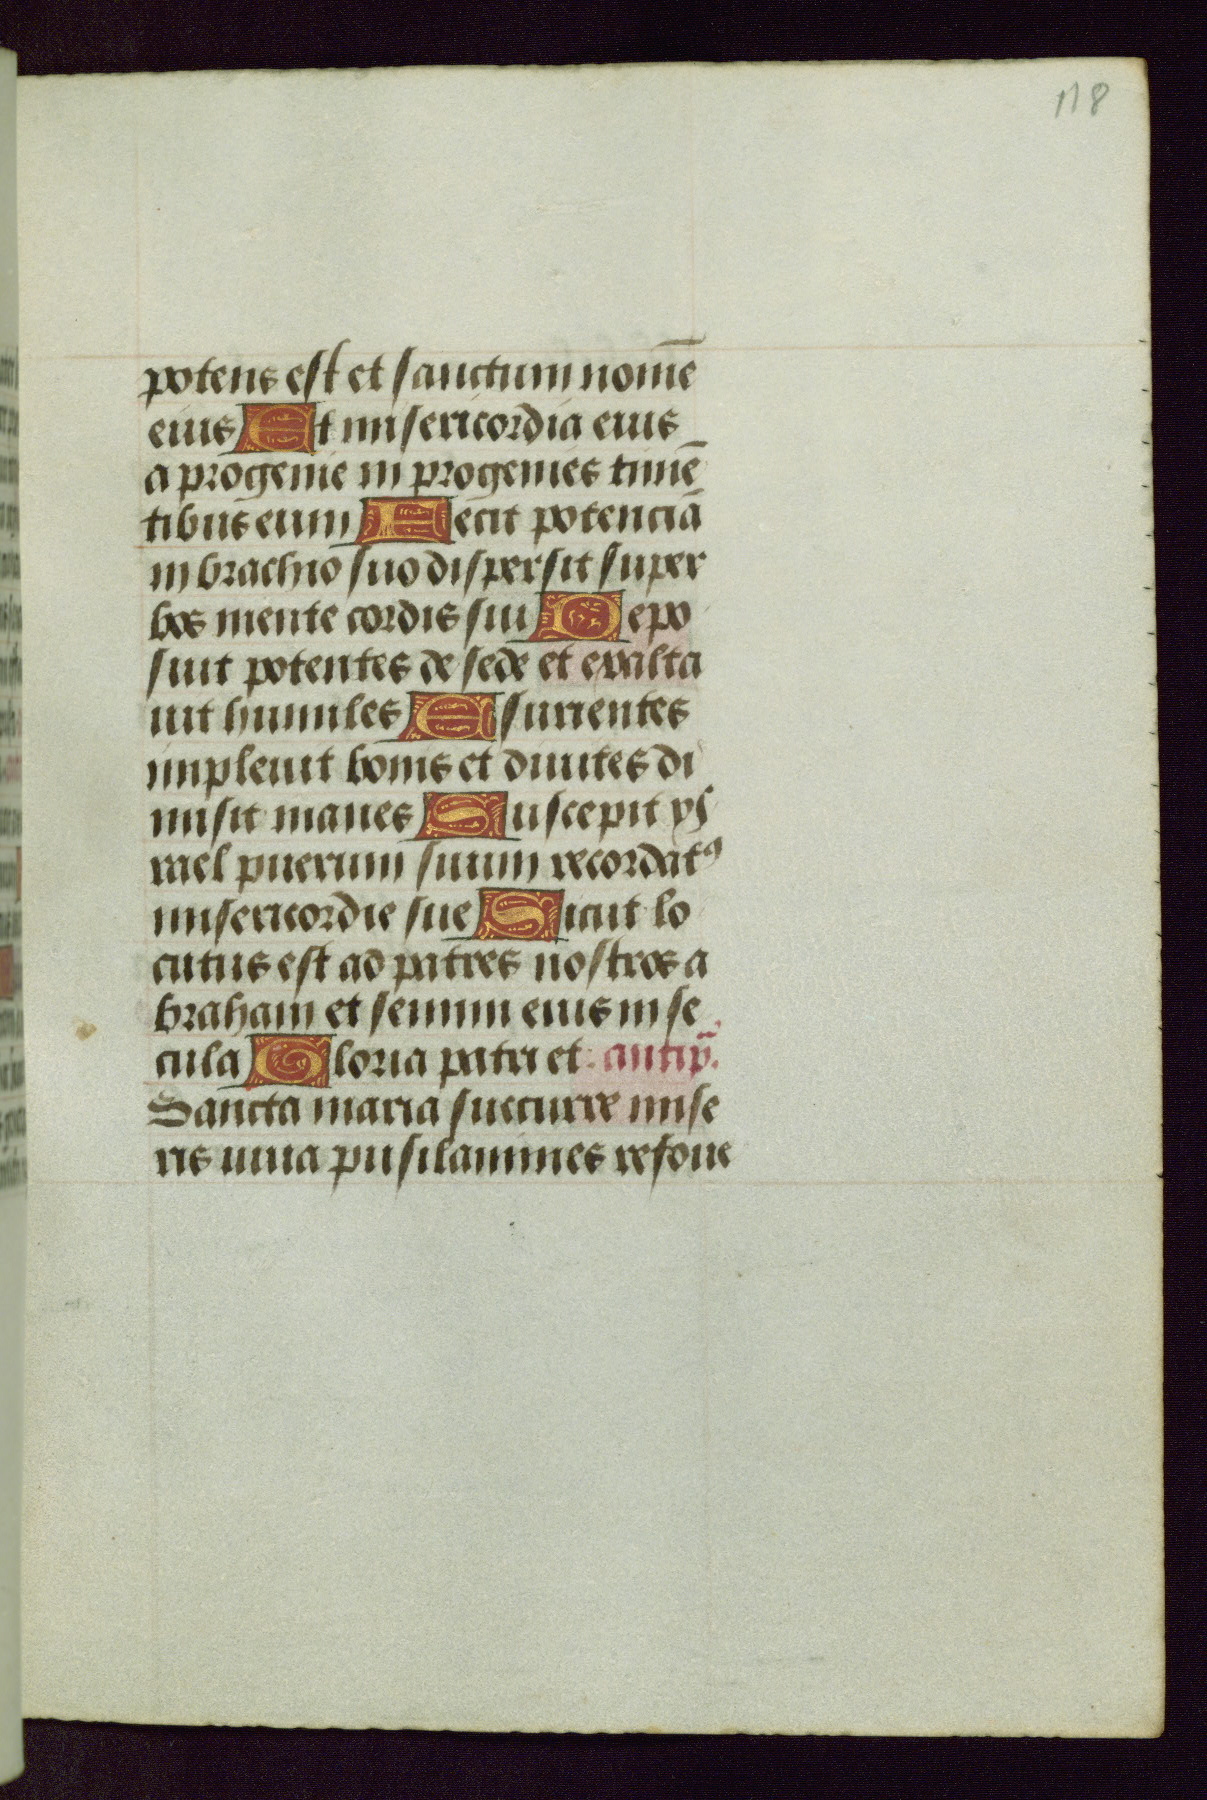 118
potens est et sanctum nomē
eius Et misericordia eius
a progenie in progenies timē
tibus eum Fecit potenciā
in brachio suo dispersit super
bos mente cordis sui Depo
suit potentes de sede et exalta
uit humiles Esurientes
impleuit bonis et diuites di
misit inanes Suscepit ys
rael puerum suum recordatꝯ
misericordie sue Sicut lo
cutus est ad patres nostros a
braham et semini eius in se
cula Gloria patri et. antip̄.
Sancta maria succurre mise
ris iuua pusilanimes refoue